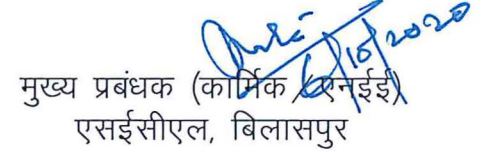 6/10/2020
मुख्य प्रबंधक (कार्मिक/एनईई)
एसईसीएल, बिलासपुर